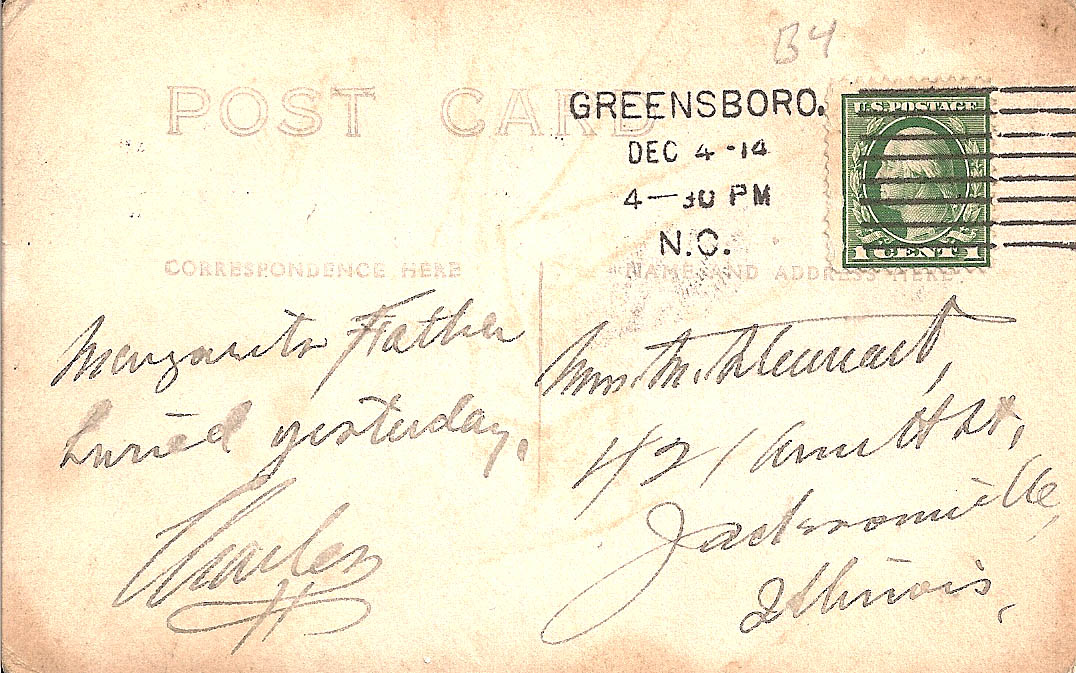 B4
POST CARD
GREENSBORO.
DEC 4 -14
4—30 PM
N.C.
U.S. POSTAGE
1 CENT 1
CORRESPONDENCE HERE
NAME AND ADDRESS HERE
Father
buried yesterday.
Charles
Mrs. M. Stewart,
421 St,
Jacksonville,
Illinois,